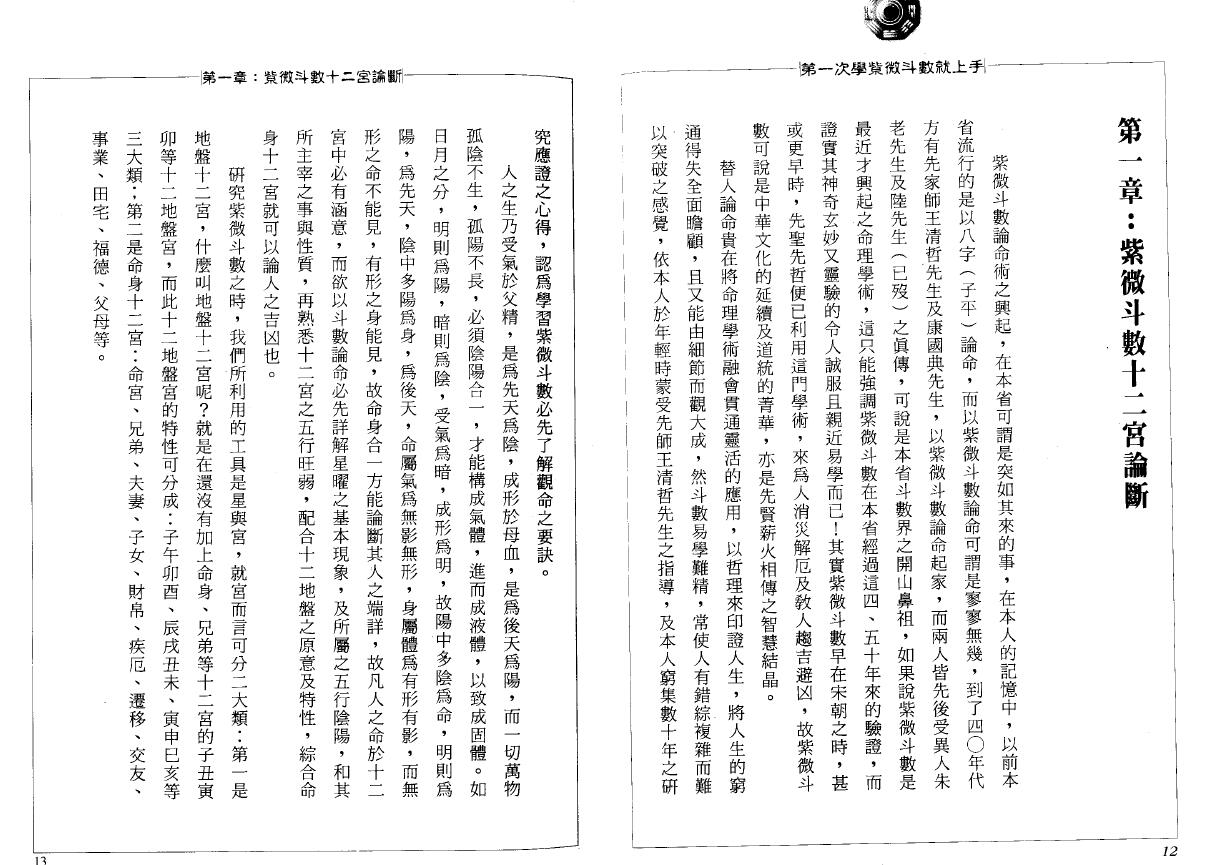 第一次學紫微斗數就上手
第一章：紫微斗數十二宮論斷
紫微斗數論命術之興起，在本省可謂是突如其來的事，在本人的記憶中，以前本
省流行的是以八字（子平）論命，而以紫微斗數論命可謂是寥寥無幾，到了四〇年代
方有先家師王清哲先生及康國典先生，以紫微斗數論命起家，而兩人皆先後受異人朱
老先生及陸先生（已歿）之眞傳，可說是本省斗數界之開山鼻祖，如果說紫微斗數是
最近才興起之命理學術，這只能強調紫微斗數在本省經過這四、五十年來的驗證，而
證實其神奇玄妙又靈驗的令人誠服且親近易學而已！其實紫微斗數早在宋朝之時，甚
或更早時，先聖先哲便已利用這門學術，來爲人消災解厄及敎人趨吉避凶，故紫微斗
數可說是中華文化的延續及道統的菁華，亦是先賢薪火相傳之智慧結晶。
替人論命貴在將命理學術融會貫通靈活的應用，以哲理來印證人生，將人生的窮
通得失全面瞻顧，且又能由細節而觀大成，然斗數易學難精，常使人有錯綜複雜而難
以突破之感覺，依本人於年輕時蒙受先師王清哲先生之指導，及本人窮集數十年之研
12
第一章：紫微斗數十二宮論斷
究應證之心得，認爲學習紫微斗數必先了解觀命之要訣。
人之生乃受氣於父精，是爲先天爲陰，成形於母血，是爲後天爲陽，而一切萬物
孤陰不生，孤陽不長，必須陰陽合一，才能構成氣體，進而成液體，以致成固體。如
日月之分，明則爲陽，暗則爲陰，受氣爲暗，成形爲明，故陽中多陰爲命，明則爲
陽，爲先天，陰中多陽爲身，爲後天，命屬氣爲無影無形，身屬體爲有形有影，而無
形之命不能見，有形之身能見，故命身合一方能論斷其人之端詳，故凡人之命於十二
宮中必有涵意，而欲以斗數論命必先詳解星曜之基本現象，及所屬之五行陰陽，和其
所主宰之事與性質，再熟悉十二宮之五行旺弱，配合十二地盤之原意及特性，綜合命
身十二宮就可以論人之吉凶也。
硏究紫微斗數之時，我們所利用的工具是星與宮，就宮而言可分二大類：第一是
地盤十二宮，什麼叫地盤十二宮呢？就是在還沒有加上命身、兄弟等十二宮的子丑寅
卯等十二地盤宮，而此十二地盤宮的特性可分成：子午卯酉、辰戌丑未、寅申巳亥等
三大類；第二是命身十二宮：命宮、兄弟、夫妻、子女、財帛、疾厄、遷移、交友、
事業、田宅、福德、父母等。
13